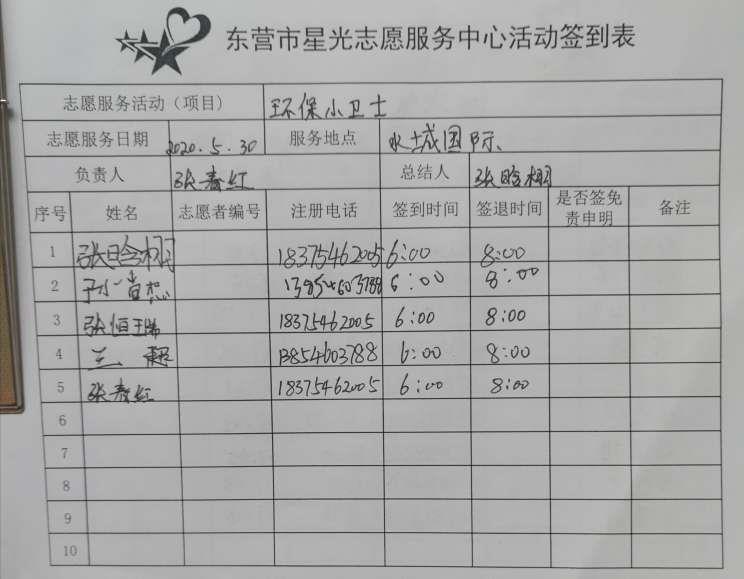 东营市星光志愿服务中心活动签到表
志愿服务活动（项目） 环保小卫士
志愿服务日期 2020.5.30 服务地点 水城国际、
负责人 张春红 总结人 张晗栩
序号 姓名 志愿者编号 注册电话 签到时间 签退时间 是否签免责申明 备注
1 张晗栩 18375462005 6:00 8:00
2 6:00 8:00
3 张恒瑞 18375462005 6:00 8:00
4 兰 翻 13854603788 6:00 8:00
5 张春红 18375462005 6:00 8:00
6
7
8
9
10